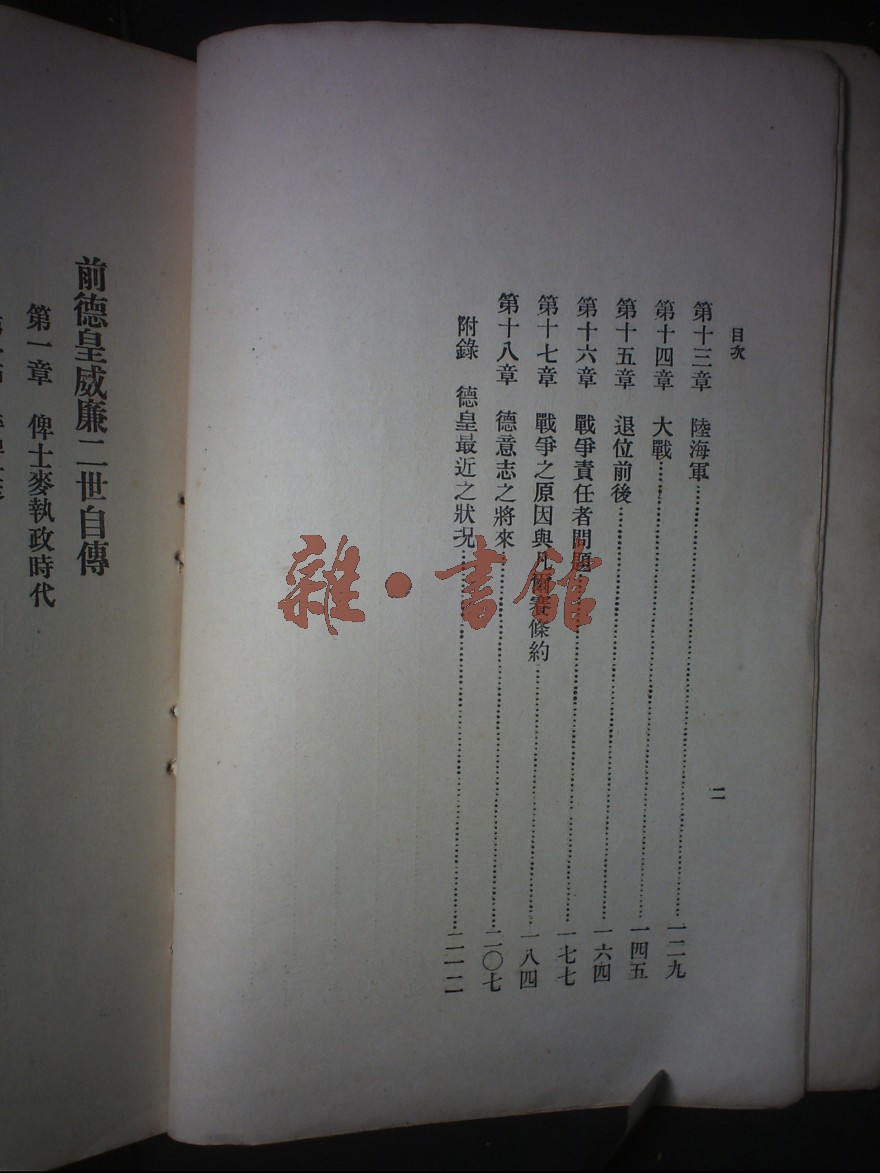 目次
第十三章　陸海軍……一二九
第十四章　大戰……一四五
第十五章　退位前後……一六四
第十六章　戰爭責任者問題……一七七
第十七章　戰爭之原因與凡爾賽條約……一八四
第十八章　德意志之將來……二〇七
附錄　德皇最近之狀况……二一二
二
前德皇威廉二世自傳
第一章　俾士麥執政時代
雜·書館